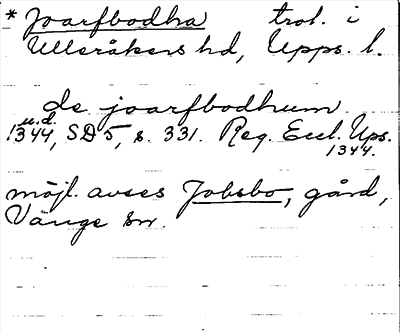 * Joarfbodha trol. i
Ulleråkers hd, Upps. l.
de joarfbodhum
u.d.
1344, SD 5, s. 331. Reg. Eccl. Ups.
1344.
möjl. avses Jobsbo, gård,
Vänge sn.